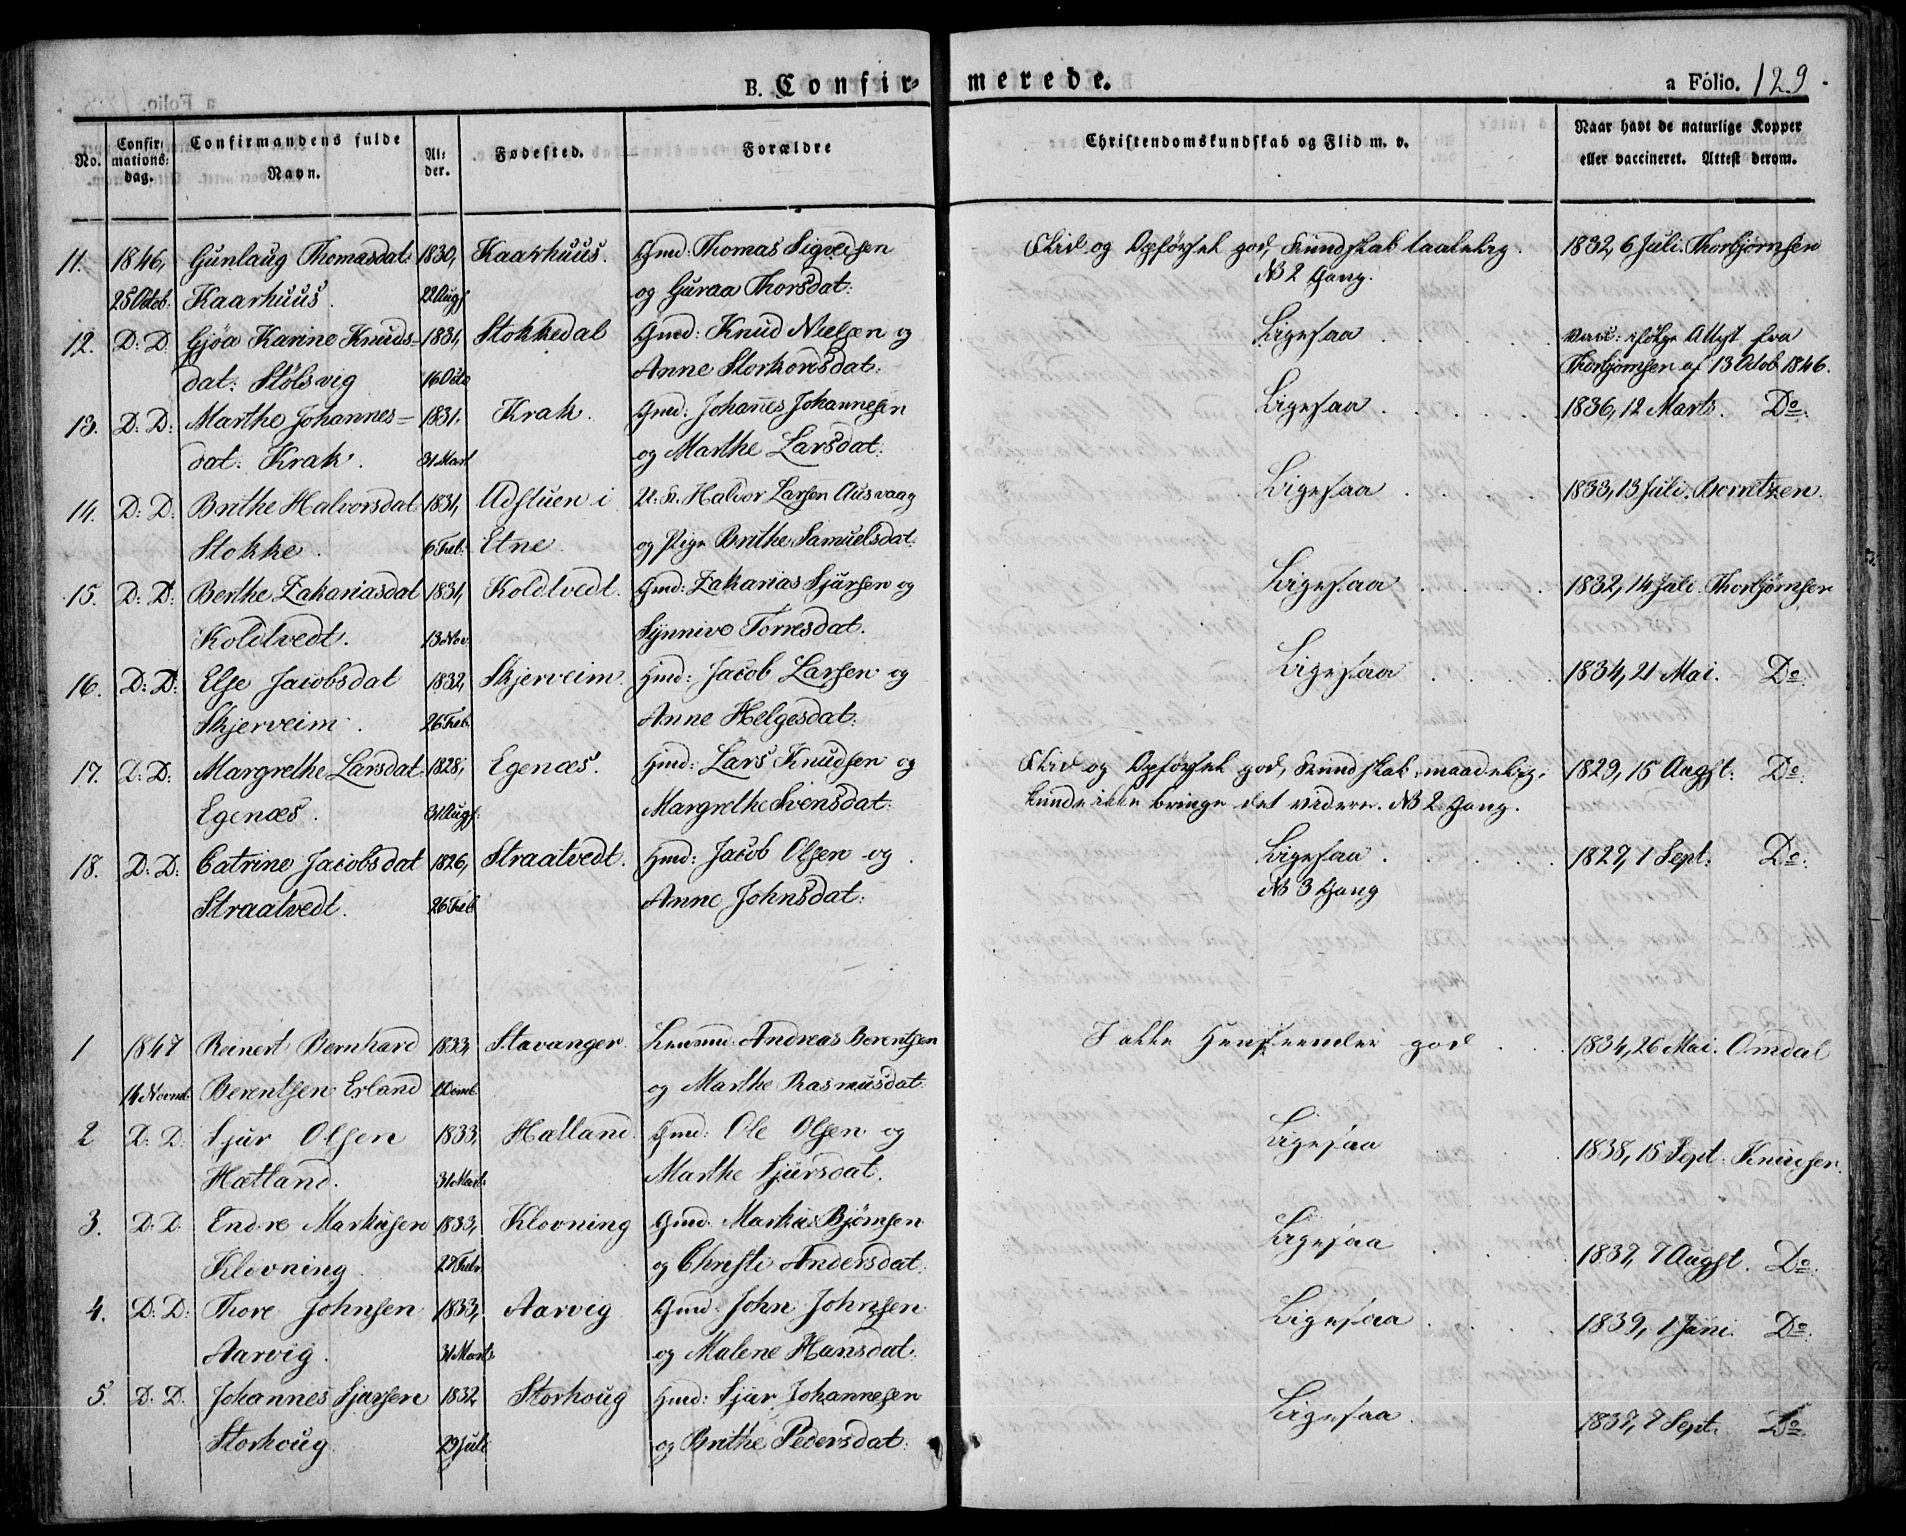 B. Confirmerede. a Folio. 129.
No. Confirmations: dag. Confirmandens fulde Navn. Alder. Fødested. Forældre Christendomskundskab og Flid m. v. Naar havt de naturlige Kopper eller vaccineret. Attest derom.
11. 1846, Gunlaug Thomasdat: 1830, Kaarhuus. Gmd: Thomas Sigversen Flid og Opførsel god, Kundskab taalelig. 1832, 6 Juli. Thorbjørnsen
25 Octob. Kaarhuus. 22 Augf og Guraa Thorsdat: NB 2 Gang.
12. D: D: Gjøa Karine Knuds= 1831, Stokkedal Gmd: Knud Nielsen og Ligesaa Vacc: ifølge Attest fra
dat: Stølsvig 16 Octo Anne Storkorsdat: Thorbjørnsen af 13 Octob 1846.
13. D: D: Marthe Johannes= 1831. Krak. Gmd: Johanes Johannesen Ligesaa 1836, 12 Marts. Do.
dat: Krak. 31 Mart og Marthe Larsdat:
14. D: D: Brithe Halvorsdat 1831, Udstuen i U. K. Halvor Larsen Ausvaag Ligesaa 1833, 13 Juli. Berntzen.
Stokke. 6 Feb. Etne. og Pige Brithe Samuelsdat:
15. D: D: Berthe Zakariasdat 1831, Koldtvedt. Gmd: Zakarias Sjursen og Ligesaa 1832, 14 Juli. Thorbjørnsen
Koldtvedt. 13 Nov. Synnive Torresdat.
16. D: D: Else Jacobsdat 1832, Skjerveim. Hmd: Jacob Larsen og Ligesaa 1834, 21 Mai. Do.
Skjerveim. 26 Feb. Anne Helgesdat:
17. D: D: Margrethe Larsdat 1828, Egenæs. Hmd: Lars Knudsen og Flid og Opførsel god, Kundskab maadelig. 1829, 15 Augst: Do.
Egenæs. 31 Augf: Margrethe Svensdat: kunde ikke bringe det videre. NB 2 Gang.
18. D: D: Catrine Jacobsdat 1826, Straatvedt. Hmd: Jacob Olsen og Ligesaa 1827, 1 Sept: Do.
Straatvedt. 26 Feb Anne Johnsdat: NB 3 Gang
1 1847 Reinert Bernhard 1833, Stavanger Lensmd: Andreas Berentsen I alle Henseender god 1834, 26 Mai. Omdal
14 Novmb. Berentsen Erland og Marthe Rasmusdat:
2 D: D. Sjur Olsen 1833, Hætland. Gmd: Ole Olsen og Ligesaa 1838, 15 Sept. Knudsen.
Hætland. 31 Mart: Marthe Sjursdat.
3. D: D. Endre Markusen 1833, Klovning Gmd. Markus Bjørnsen Ligesaa 1837, 7 Augst. Do.
Klovning 27 Feb. og Christi Andersdat:
4. D: D: Thore Johnsen 1833, Aarvig Gmd. John Johnsen Ligesaa 1839, 1 Juni. Do.
Aarvig. 31 Mart: og Malene Hansdat:
5. D: D. Johannes Sjursen 1832, Storhoug Hmd: Sjur Johannesen Ligesaa. 1837, 7 Sept. Do.
Storhoug. 29 Juli og Brithe Pedersdat: